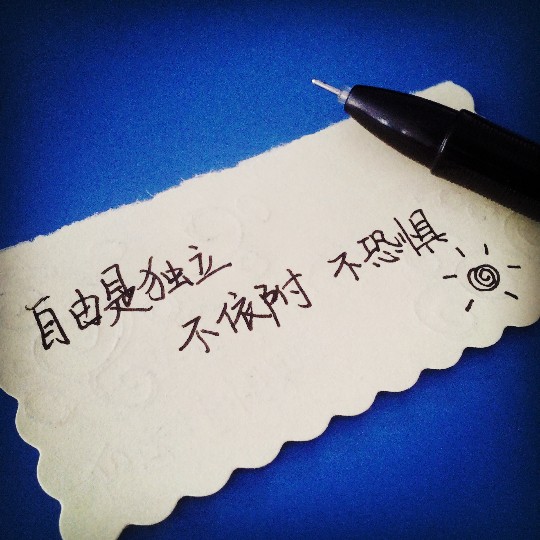 自由是独立
不依附 不恐惧